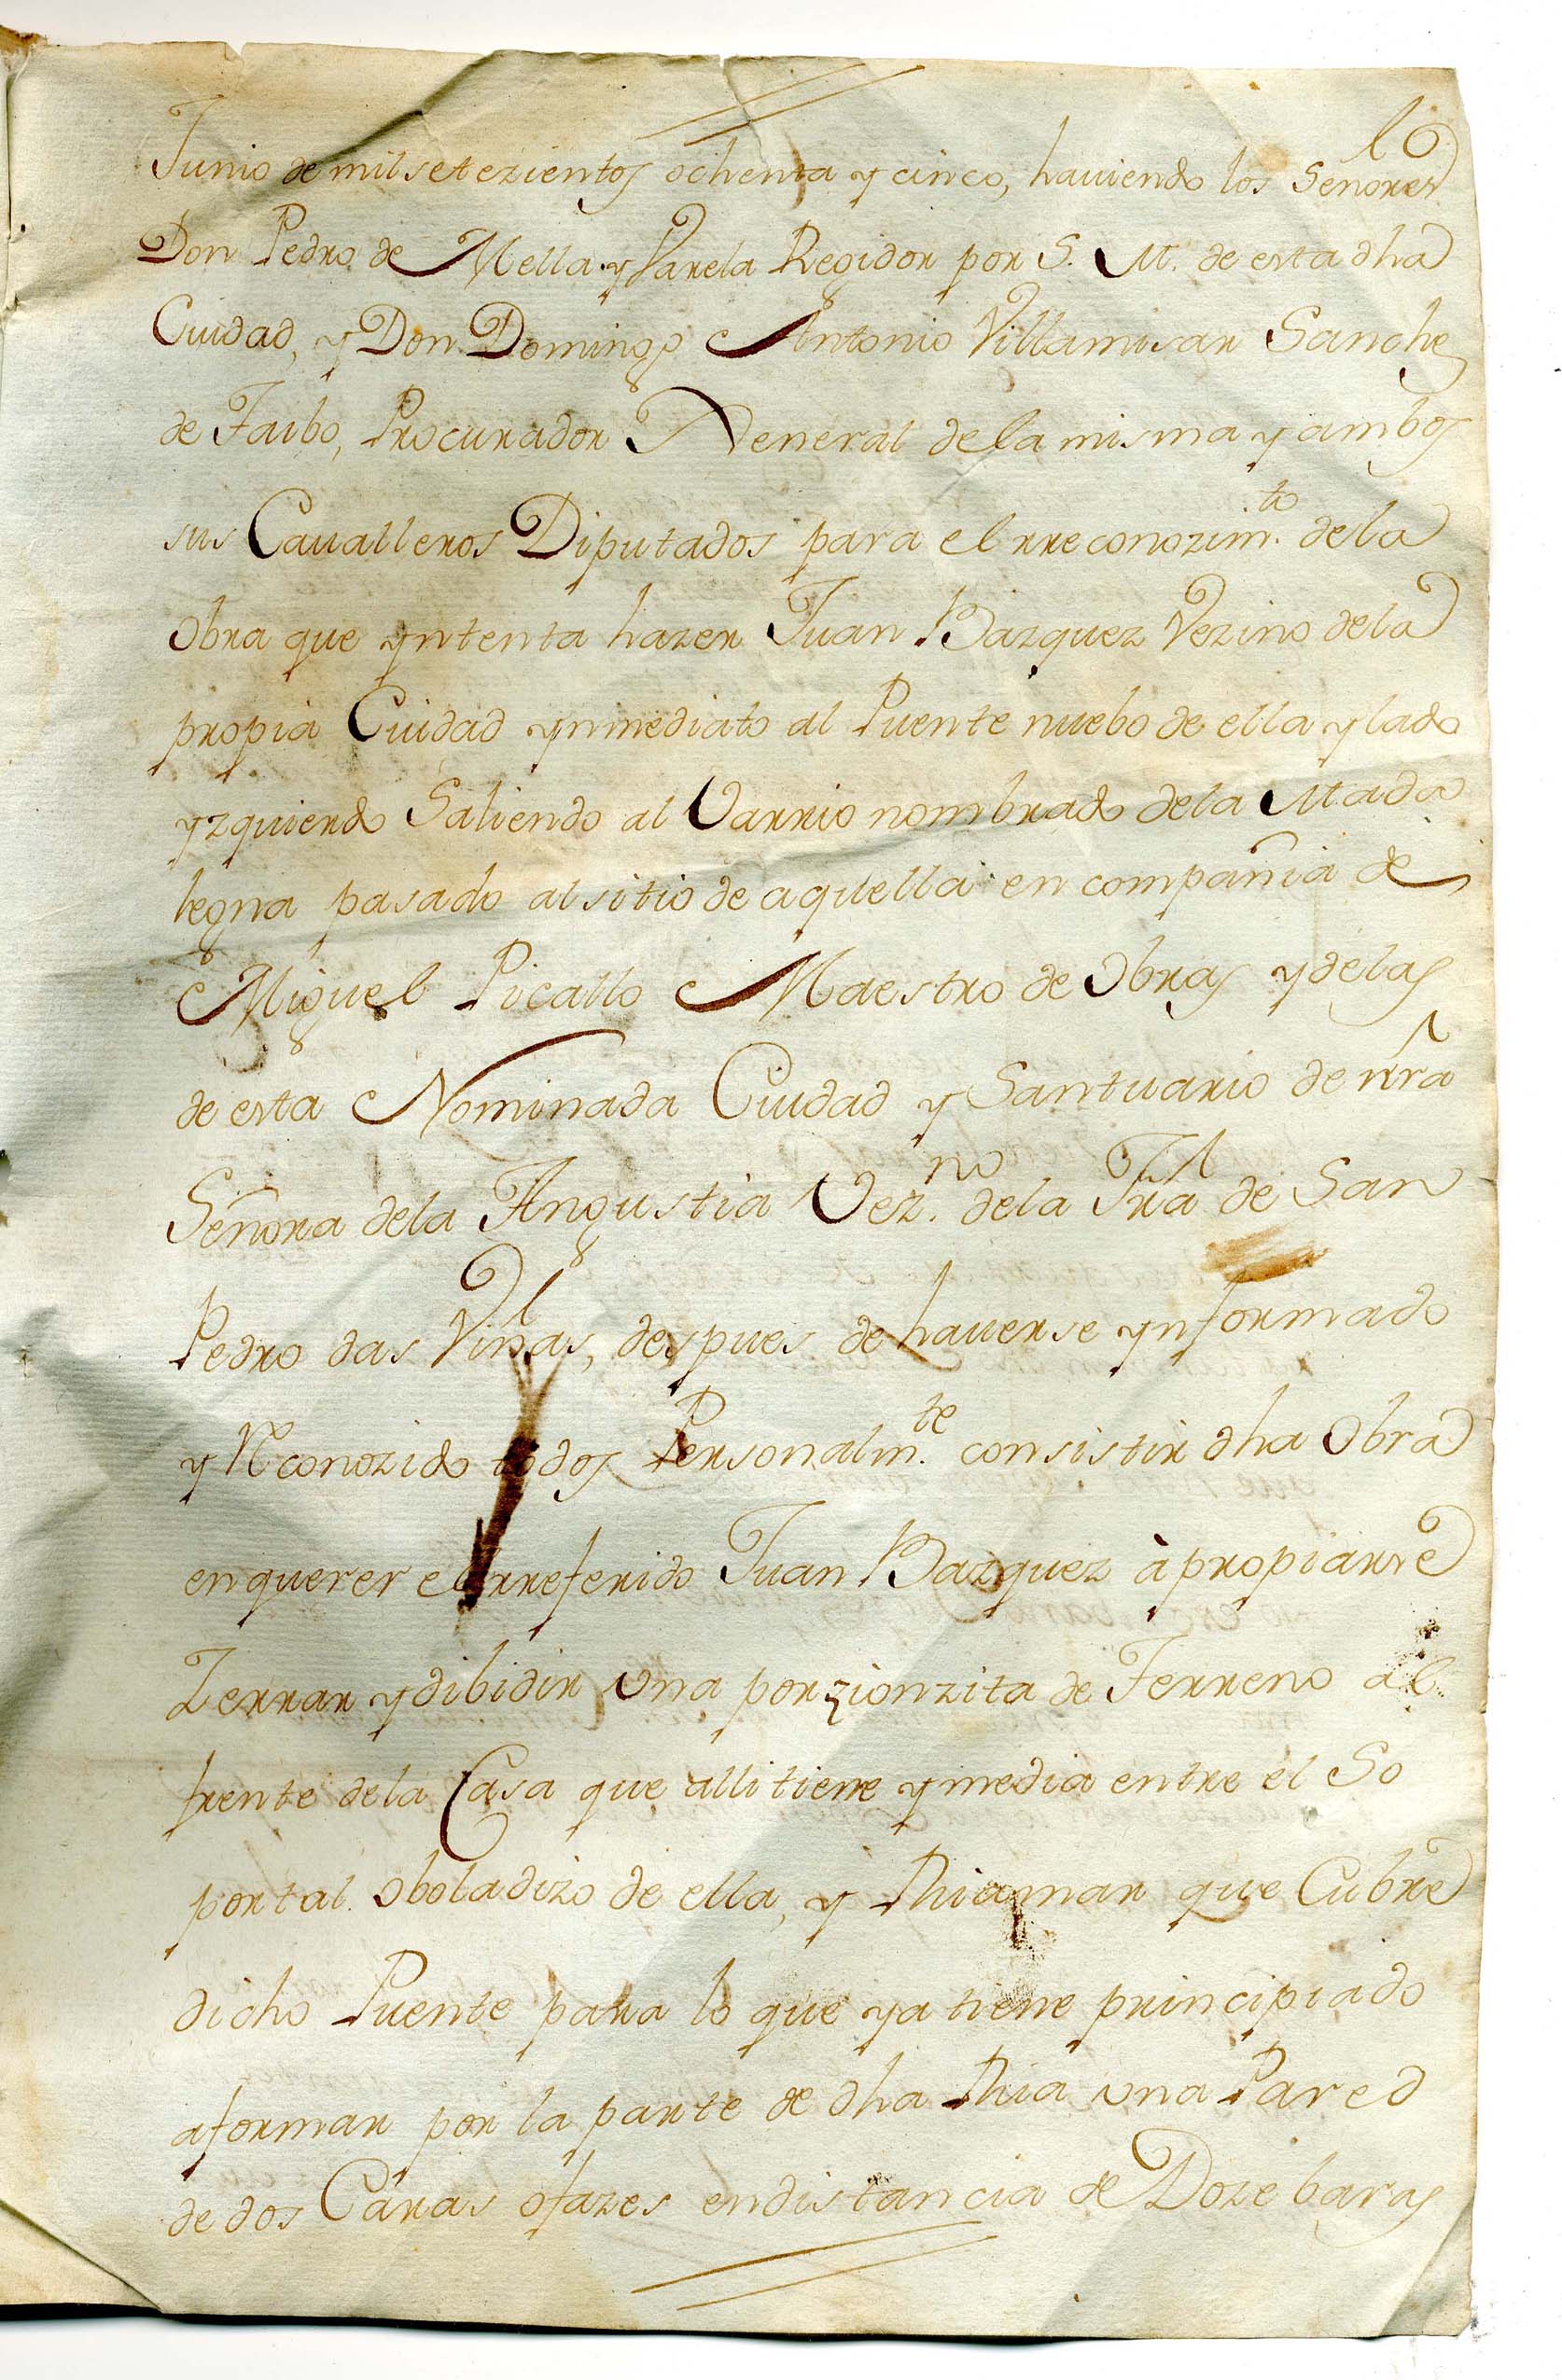 10
Junio de mil setezientos ochenta y cinco, haviendo los Señores
Don Pedro de Mella y Varela Regidor por S. M. de esta dha
Ciudad, y Don Domingo Antonio Villamisar Sanche
de Taibo, Procurador Xeneral de la misma y ambos
sus Cavalleros Diputados para el rreconozim.to de la
obra que yntenta hazer Juan Bazquez Vezino de la
propia Ciudad ynmediato al Puente nuebo de ella y lado
yzquierdo Saliendo al Varrio nombrado de la Mada
legna pasado al sitio de aquella en compañia de
Miguel Picallo Maestro de Obras y de las
de esta Nominada Ciudad y Santuario de nrã
Señora de la Angustia Vez.no de la Frã de San
Pedro das Viñas, despues de haverse ynformado
y Rconozido todos Personalm.te consistir dha Obra
en querer el rreferido Juan Bazquez à propiarse
Zerrar y dibidir una porzionzita de Terreno al
frente de la Casa que alli tiene y media entre el So
portal oboladizo de ella, y Rhiamar que Cubre
dicho Puente para lo que ya tiene principiado
a formar por la parte de dha Rhia una Pared
de dos Caras o fazes en distancia de Doze baras